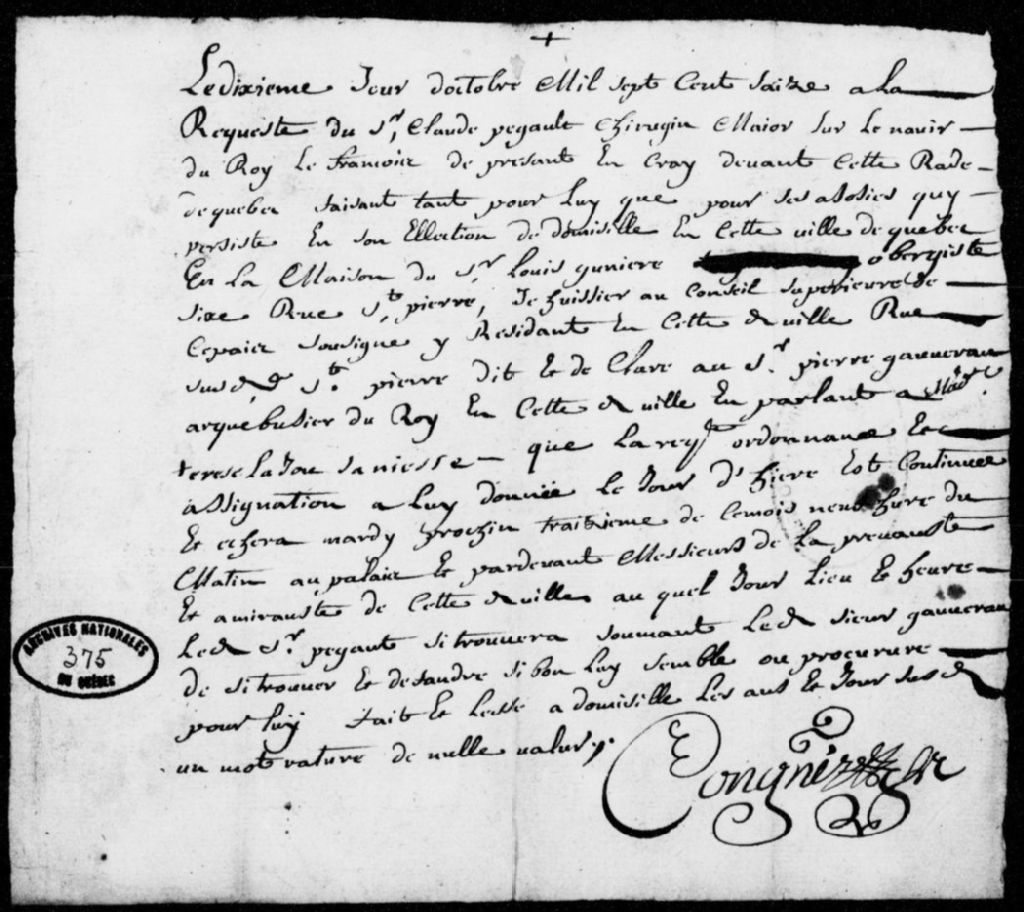 +
Ledixieme Jour doctobre Mil sept Cent saize a la
Requeste du Sr, Claude pegault Chirugin Maior sur Le navir
du Roy Le francoier de presant En Cray devant Cette Rade
de quebec faisant tant pour Luy que pour ses asosies quy
persiste En son Ellection de domiselle En Cette ville de quebec
En La Maison du Sr Louis guniere obergiste
size Reue St pierre, Je huissier au Conseil superieurre de
Cepaier sousigne y Residant En Cette d ville Rue
susd d St. pierre dit Et de Clare au Sr. pierre gauuerau
arquebusier du Roy En Cette d ville En parlant a Mad
terese la Joue sa niesse que La reqt ordonnance Et
assignation a Luy donnée le Jour d'hiere Est Continuee
Et echera mardy prochin traitsieme de Cemois neuf hure du
Matin au palaie Et pardevant Messieurs de La prevauste
Et amirauste de Cette d ville au quel Jour Lieu Et heure
Led Sr. pegaut sitrouuera soumant Led sieur gauuerau
de sitrouuer Et desandre sibon Luy semble ou procurure
pour Luy fait Et Lesse a domiselle Les ans Et Jour susd
un mot rature de nulle valur
Congnet
ARCHIVES NATIONALES
375
DU QUÉBEC